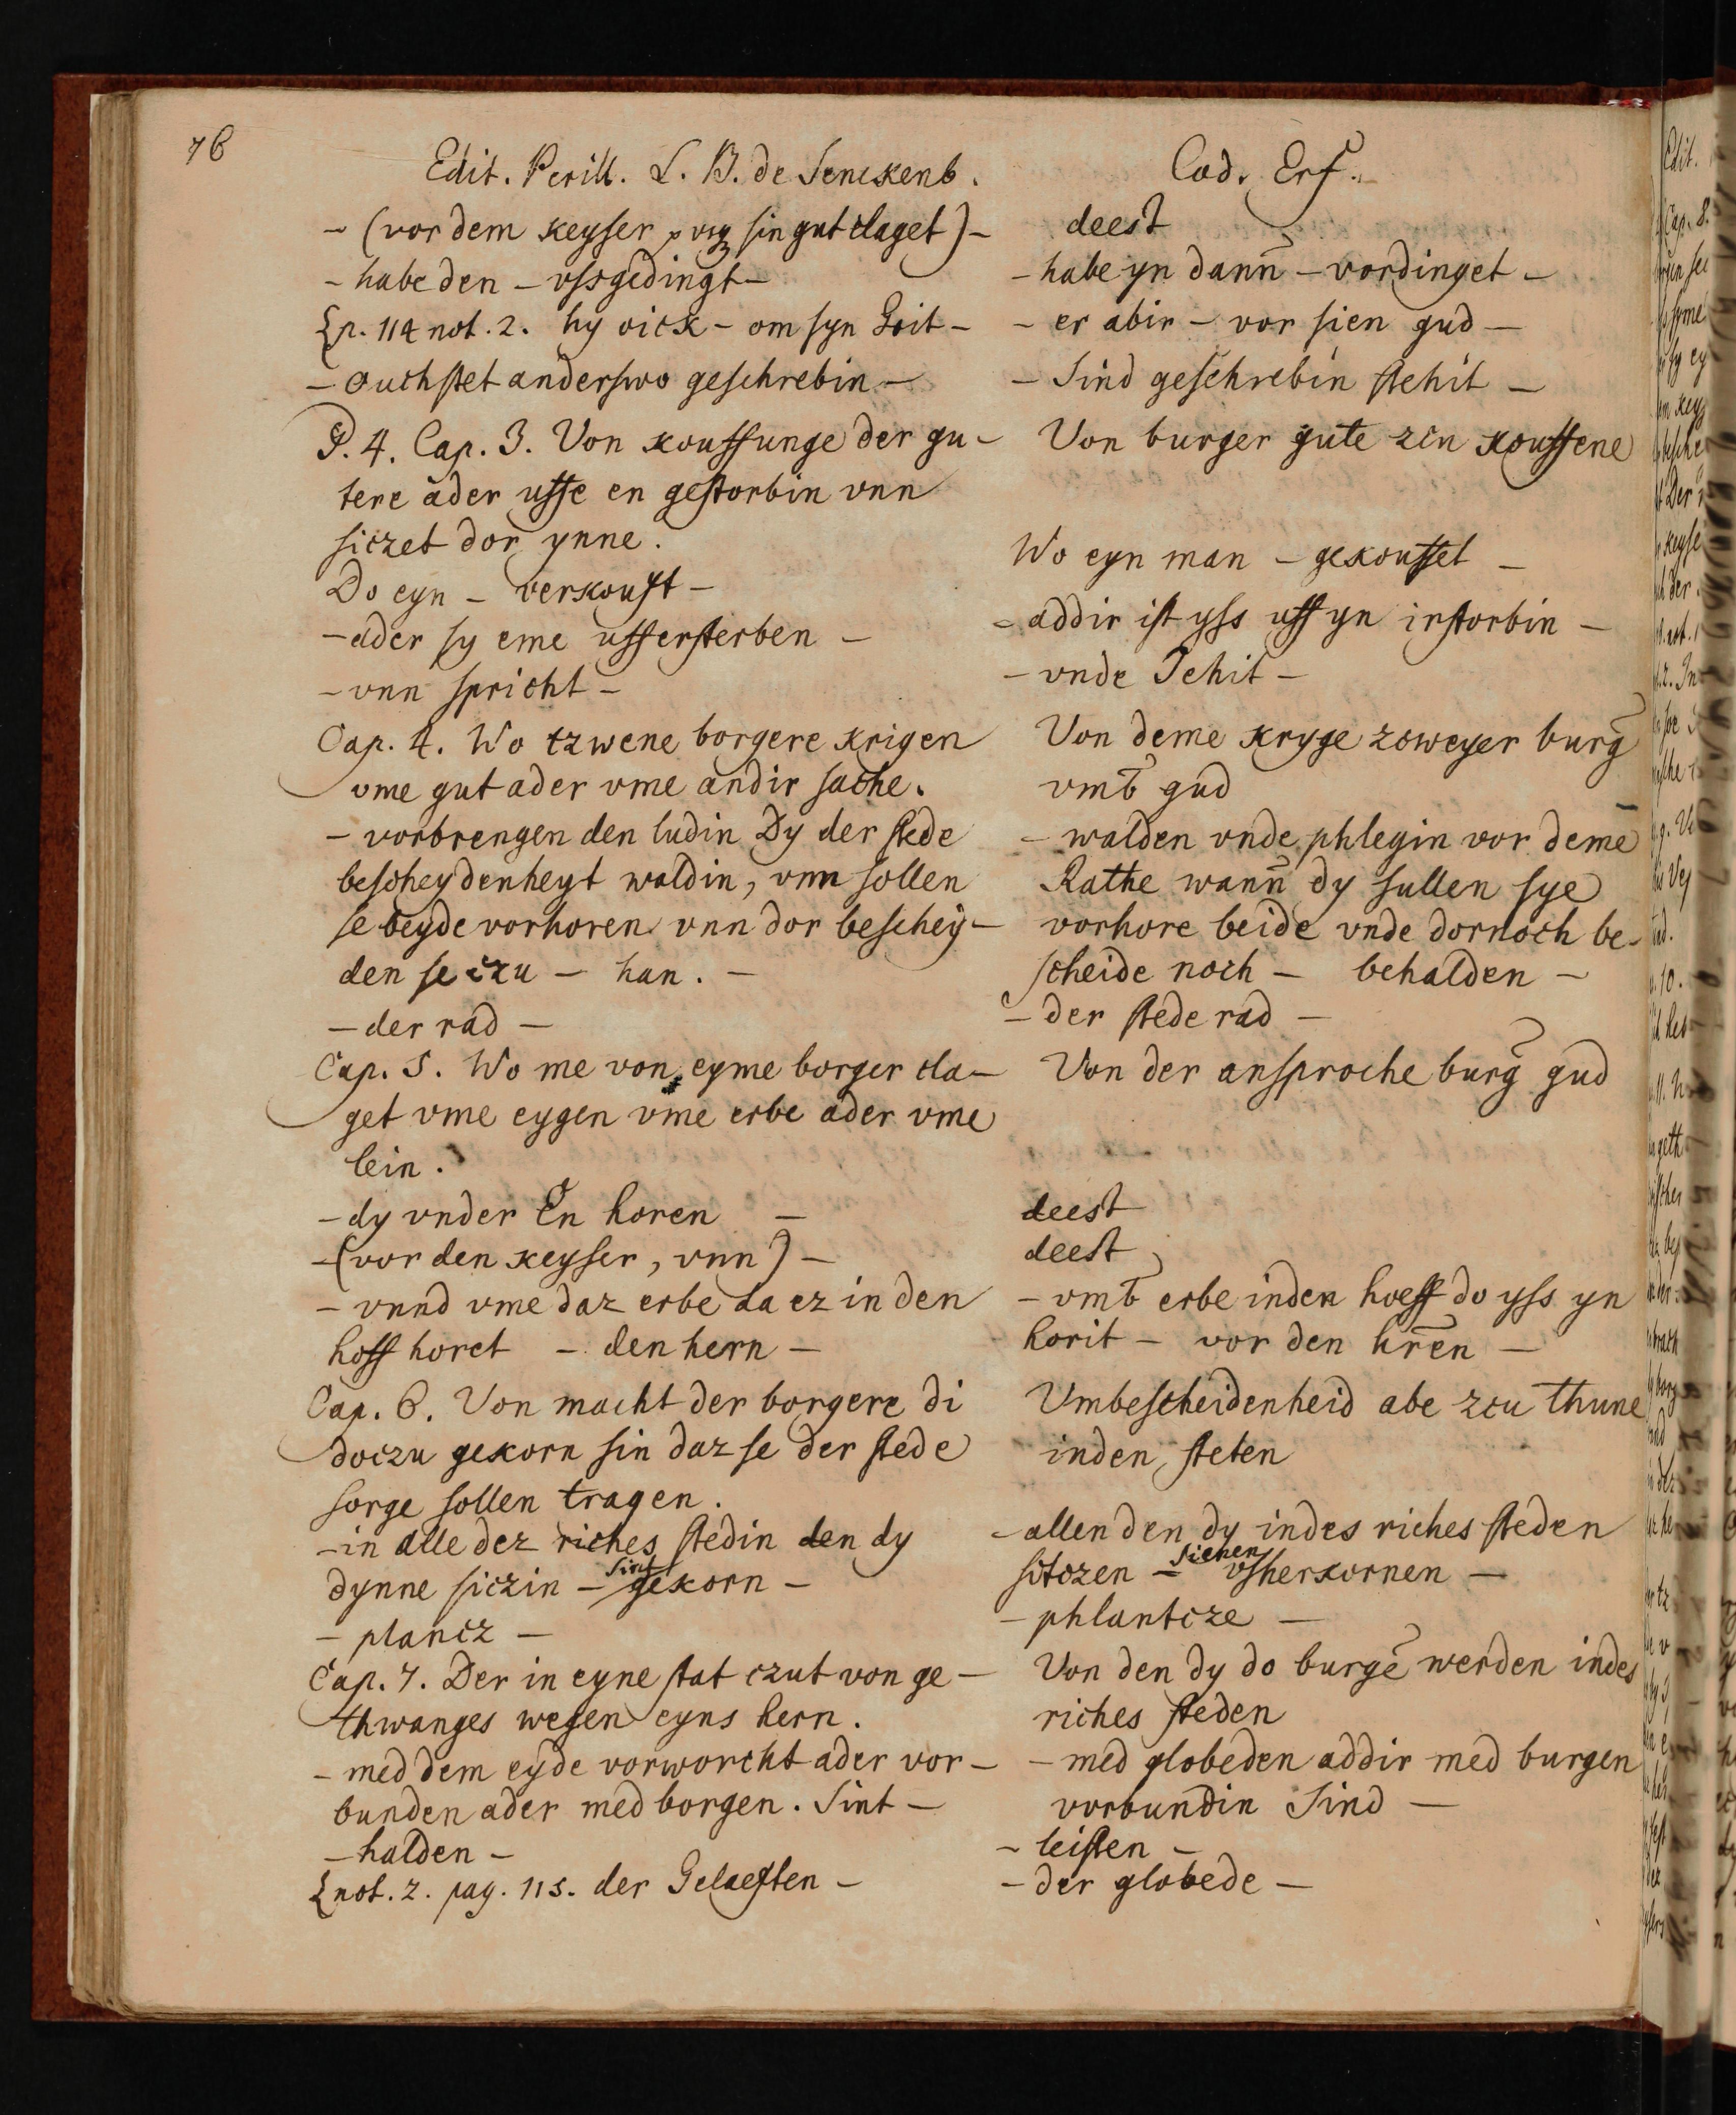 76
Edit. Perill. L. B. de Senckenb.
– (vor dem keyser sin gut claget) –
– habe den – ussgedingt –
p. 114 not. 2. hy oick – om syn Goit –
– ouch stet anderswo geschrebin –
P. 4. Cap. 3. Von kouffunge der gu-
tere ader uffe en gestorbin vnn
siczet dor ynne.
Do eyn – verkouft –
– ader sy eme uff ersterben –
– vnn spricht –
Cap. 4. Wo tzwene borgere krigen
vme gut ader vme andir sache.
– vorbrengen den ludin Dy der stede
bescheydenheyt waldin, vnn sollen
se beyde vorhoren vnn dor beschey-
den se czu – han. –
– der rad –
Cap. 5. Wo me von eyme borger cla-
get vme eygen vme erbe ader vme
lein.
– dy vnder En horen –
– (vor den keyser, vnn) –
– vnnd vme daz erbe da ez in den
hoff horet – den hern –
Cap. 6. Von macht der borgere di
doczu gekorn sin daz se der stede
sorge sollen tragen.
– in alle dez riches stedin den dy
dynne siczin – sint gekorn –
– plancz –
Cap. 7. Der in eyne stat czut von ge-
thwanges wegen eyns hern.
– med dem eyde vorworcht ader vor-
bunden ader med borgen. Sint –
– halden –
not. 2. pag. 115. der Gelaeften –
Cod. Erf.
deest
– habe yn dann̄ – vordinget –
– er abir – vor sien gud –
– Sind geschrebin stehit –
Von burger gute zcu kouffene
Wo eyn man – gekouffet –
– addir ist yss uff yn irstorbin –
– vnde Jehit –
Von deme kryge zcweyer burḡ
vmb̄ gud
– walden vnde phlegin vor deme
Rathe wann̄ dy sullen sye
vorhore beide vnde dornoch be-
scheide noch – behalden –
– der stede rad –
Von der ansproche burḡ gud
deest
deest
– vmb̄ erbe inden hoeff do yss yn
horit – vor den hr̄en –
Vmbescheidenheid abe zcu thune
inden steten
– allen den dy indes riches steden
sitczen – sichen vsherkornen –
– phlantcze –
Von den dy do burgē werden indes
riches steden
– med globeden addir med burgen
vorbundin Sind –
– leisten –
– der globede –